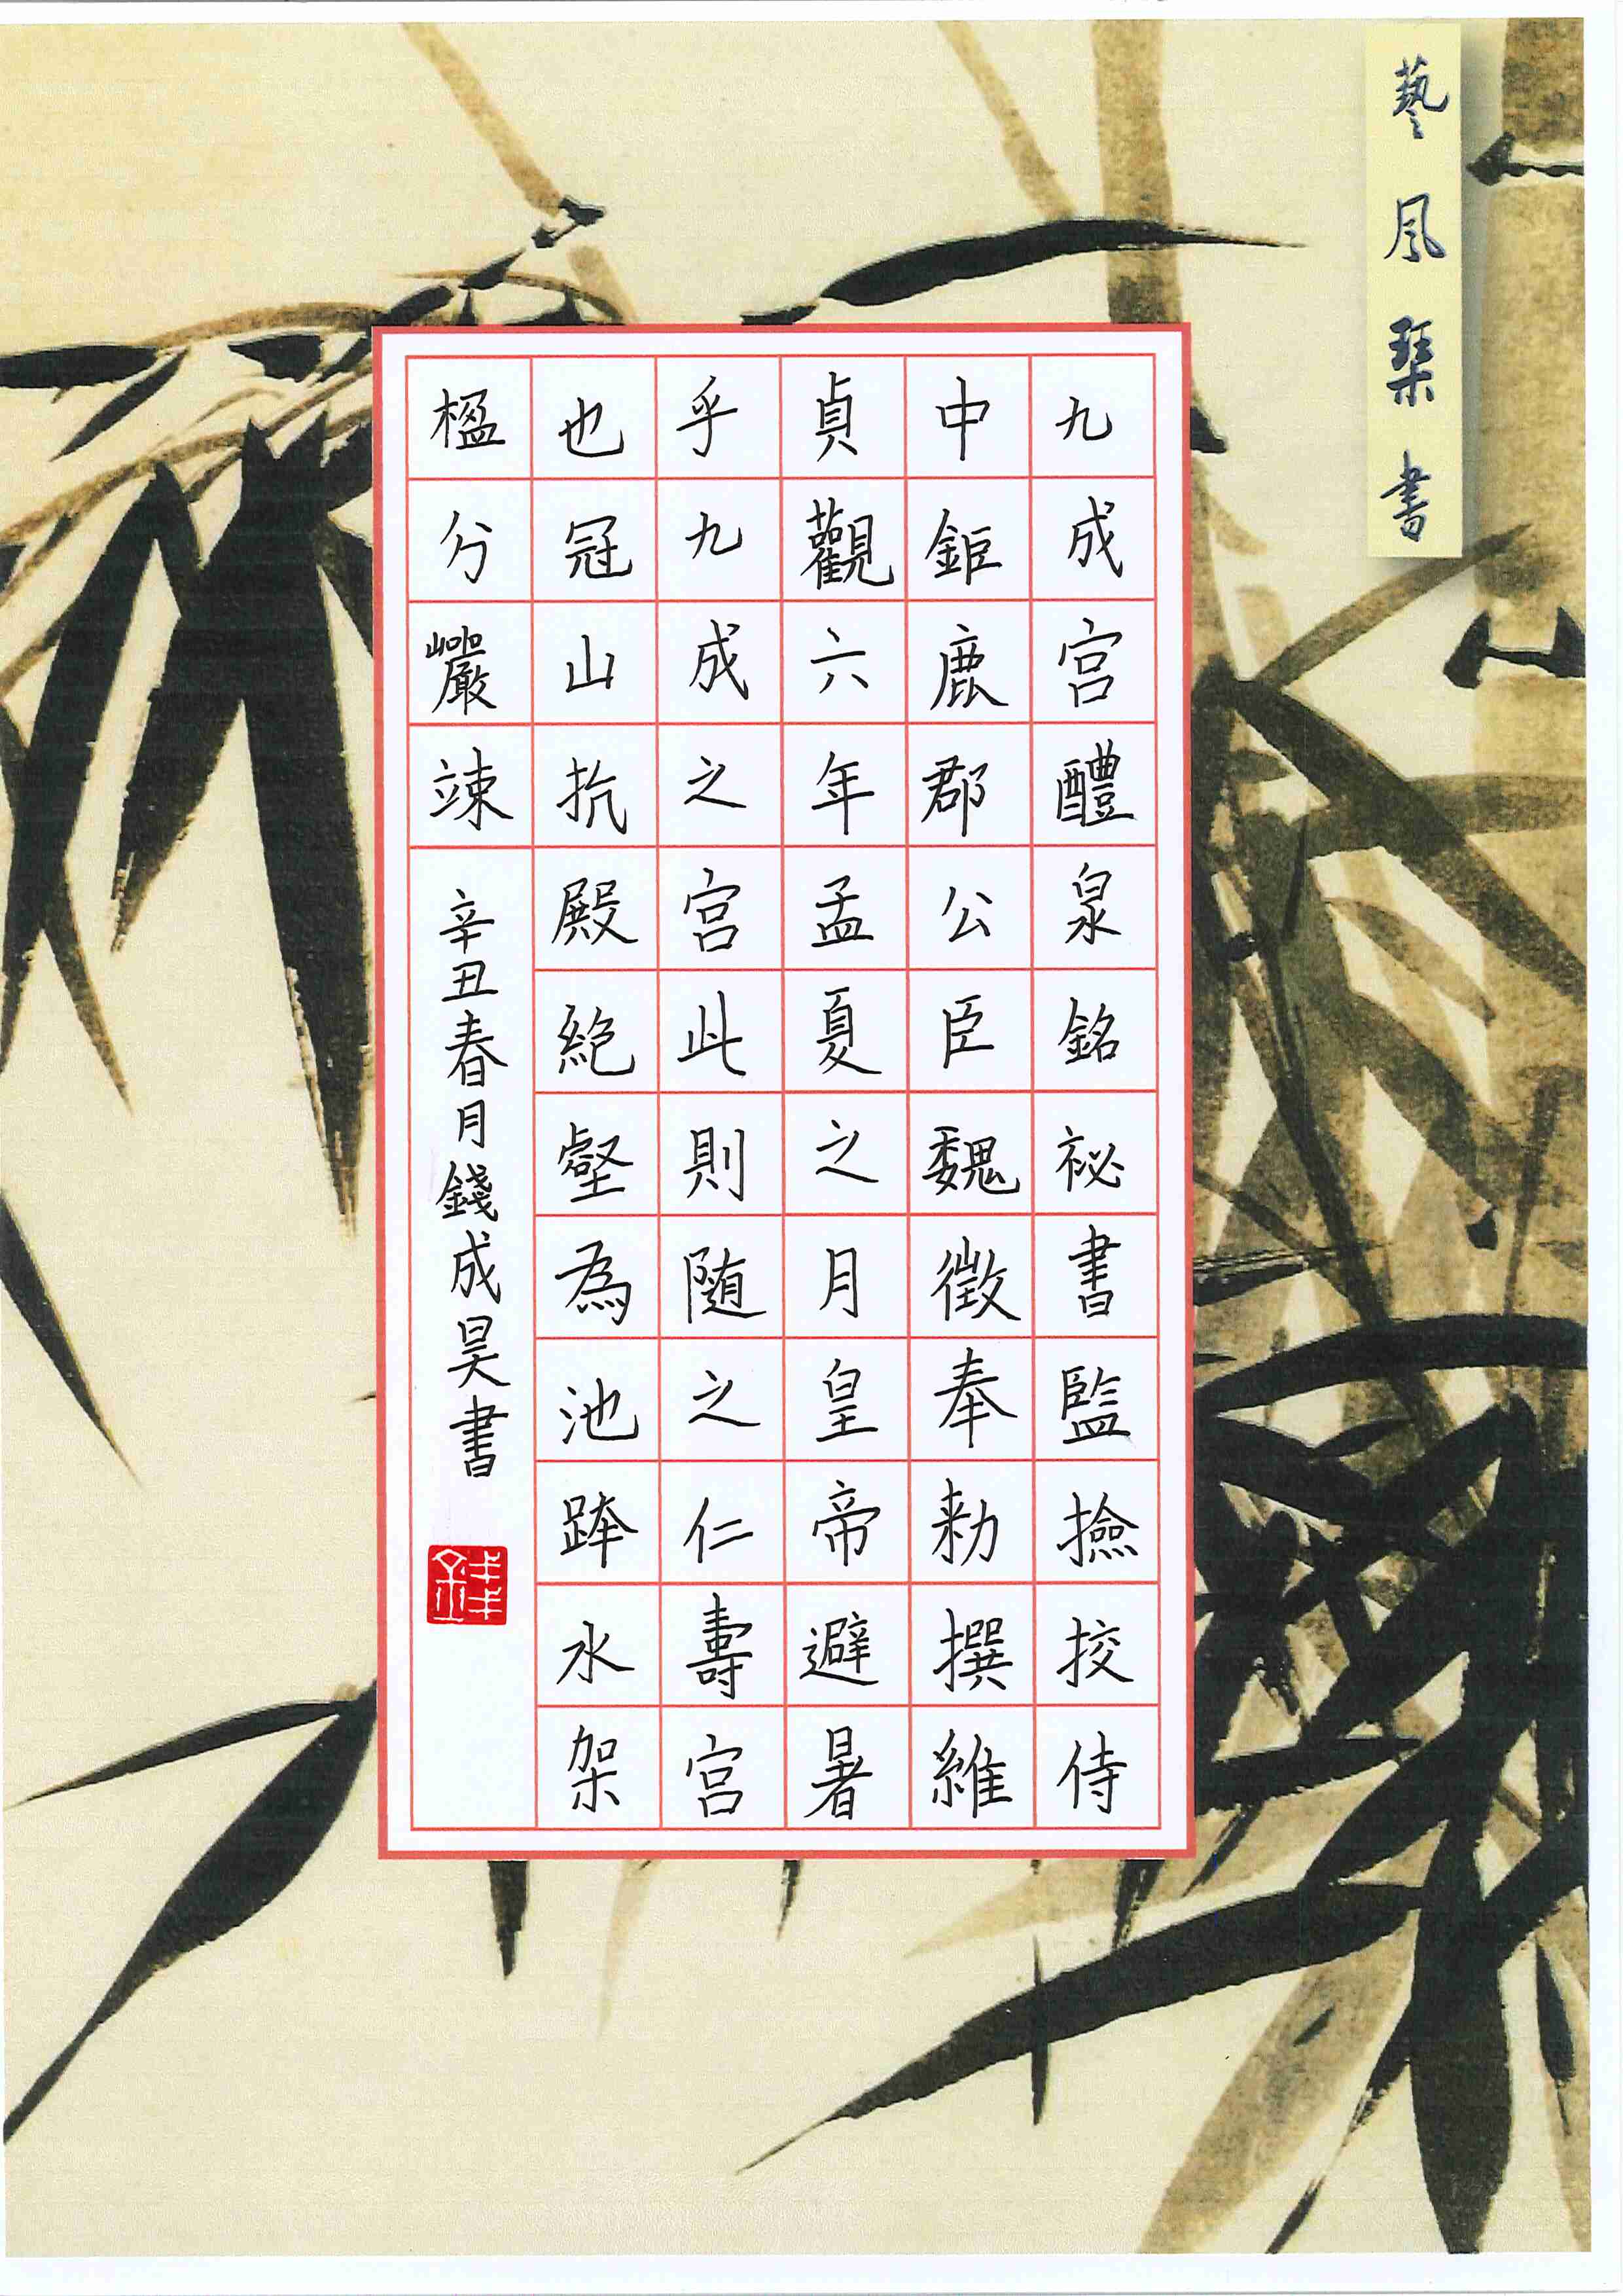 藝風琹書
九成宫醴泉銘祕書監撿挍侍
中鉅鹿郡公臣魏徵奉勑撰維
貞觀六年孟夏之月皇帝避暑
乎九成之宫此則随之仁壽宫
也冠山抗殿絶壑為池跨水架
楹分巖竦
辛丑春月錢成昊書
錢